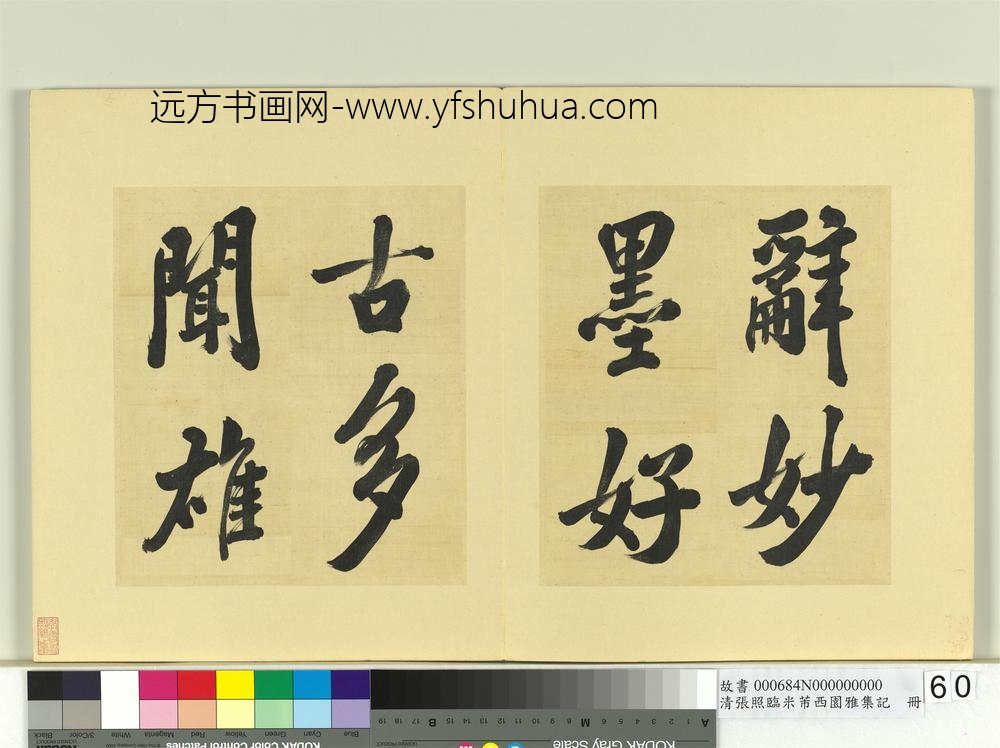 远方书画网-www.yfshuhua.com
辭妙
墨好
古多
聞雄
故書 000684N000000000
清張照臨米芾西園雅集記 冊
60
KODAK Color Control Patches
Blue
Cyan
Green
Yellow
Red
Magenta
White
3/Color
Black
KODAK Gray Scale
A 1 2 3 4 5 6 M 8 9 10 11 12 13 14 15 B 17 18 19